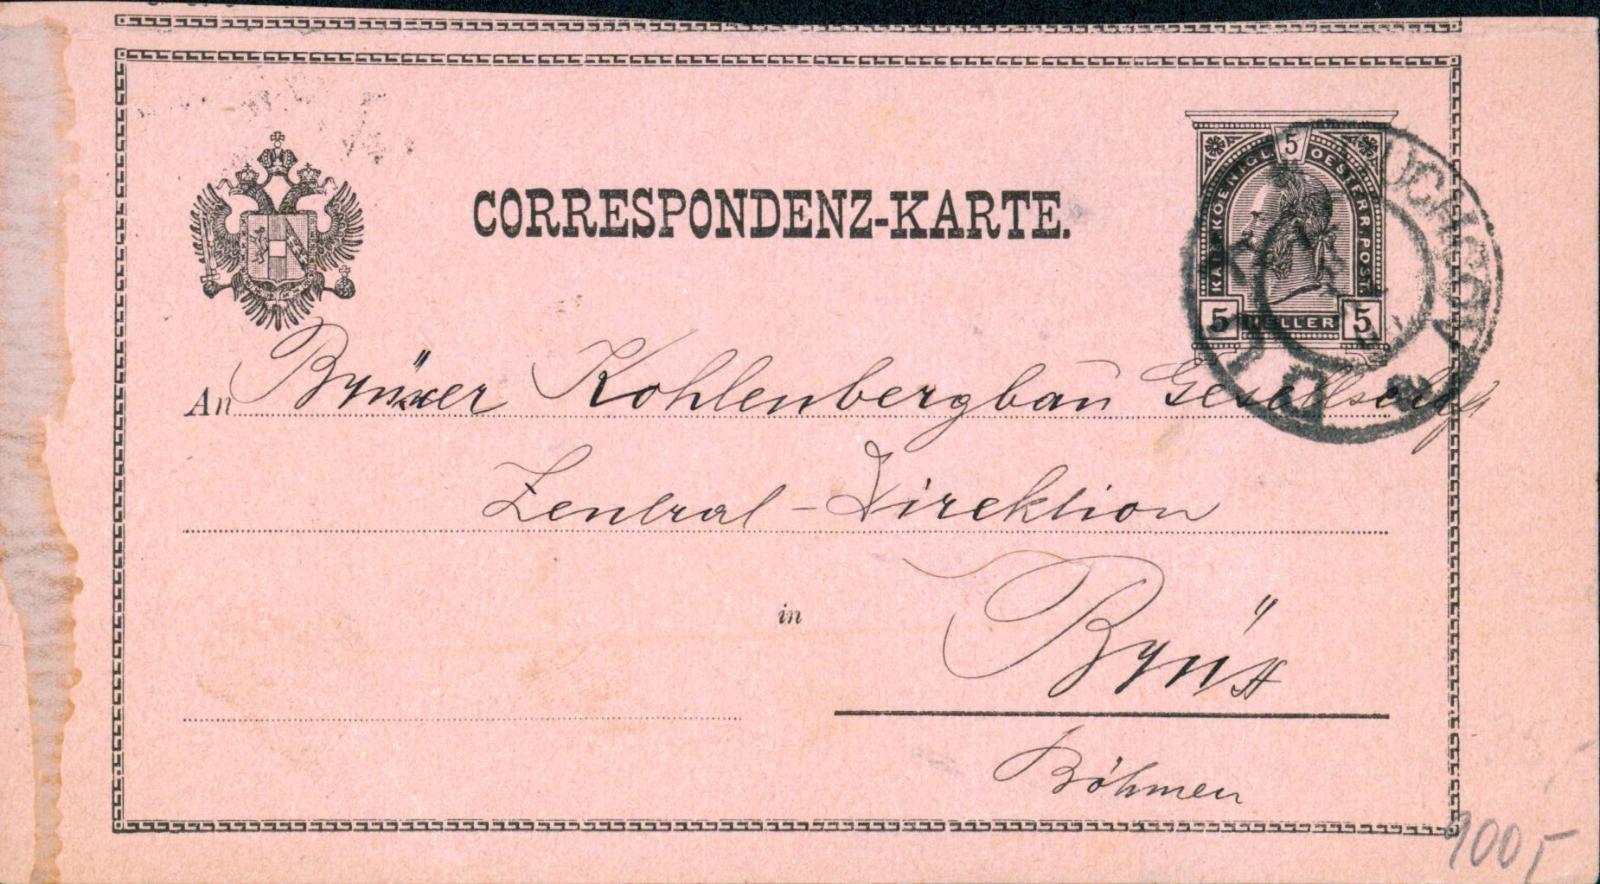 CORRESPONDENZ-KARTE.
5
KAIS. KOENIGL. OESTERR. POST.
5 HELLER 5
An Brüxer Kohlenbergbau Gesellschaft
Zentral-Direktion
in Brüx
Böhmen